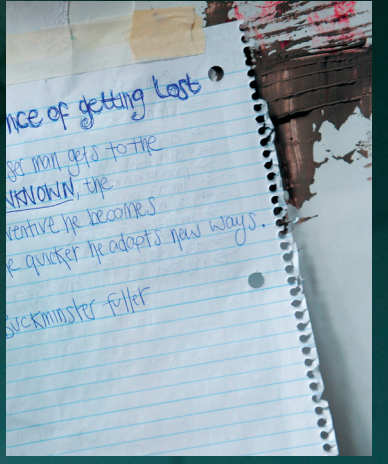 nce of getting Lost
ser man gets to the
NKNOWN, the
ventive he becomes
e quicker he adopts new ways.
Buckminster fuller